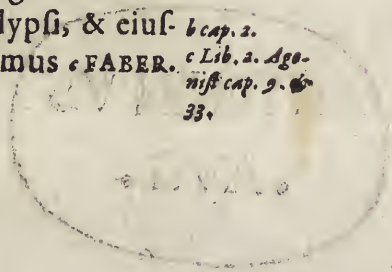 lypſi, & eiuſ-
mus c FABER.
b cap. 2.
c Lib. 2. Ago-
niſt cap. 9. &
33.